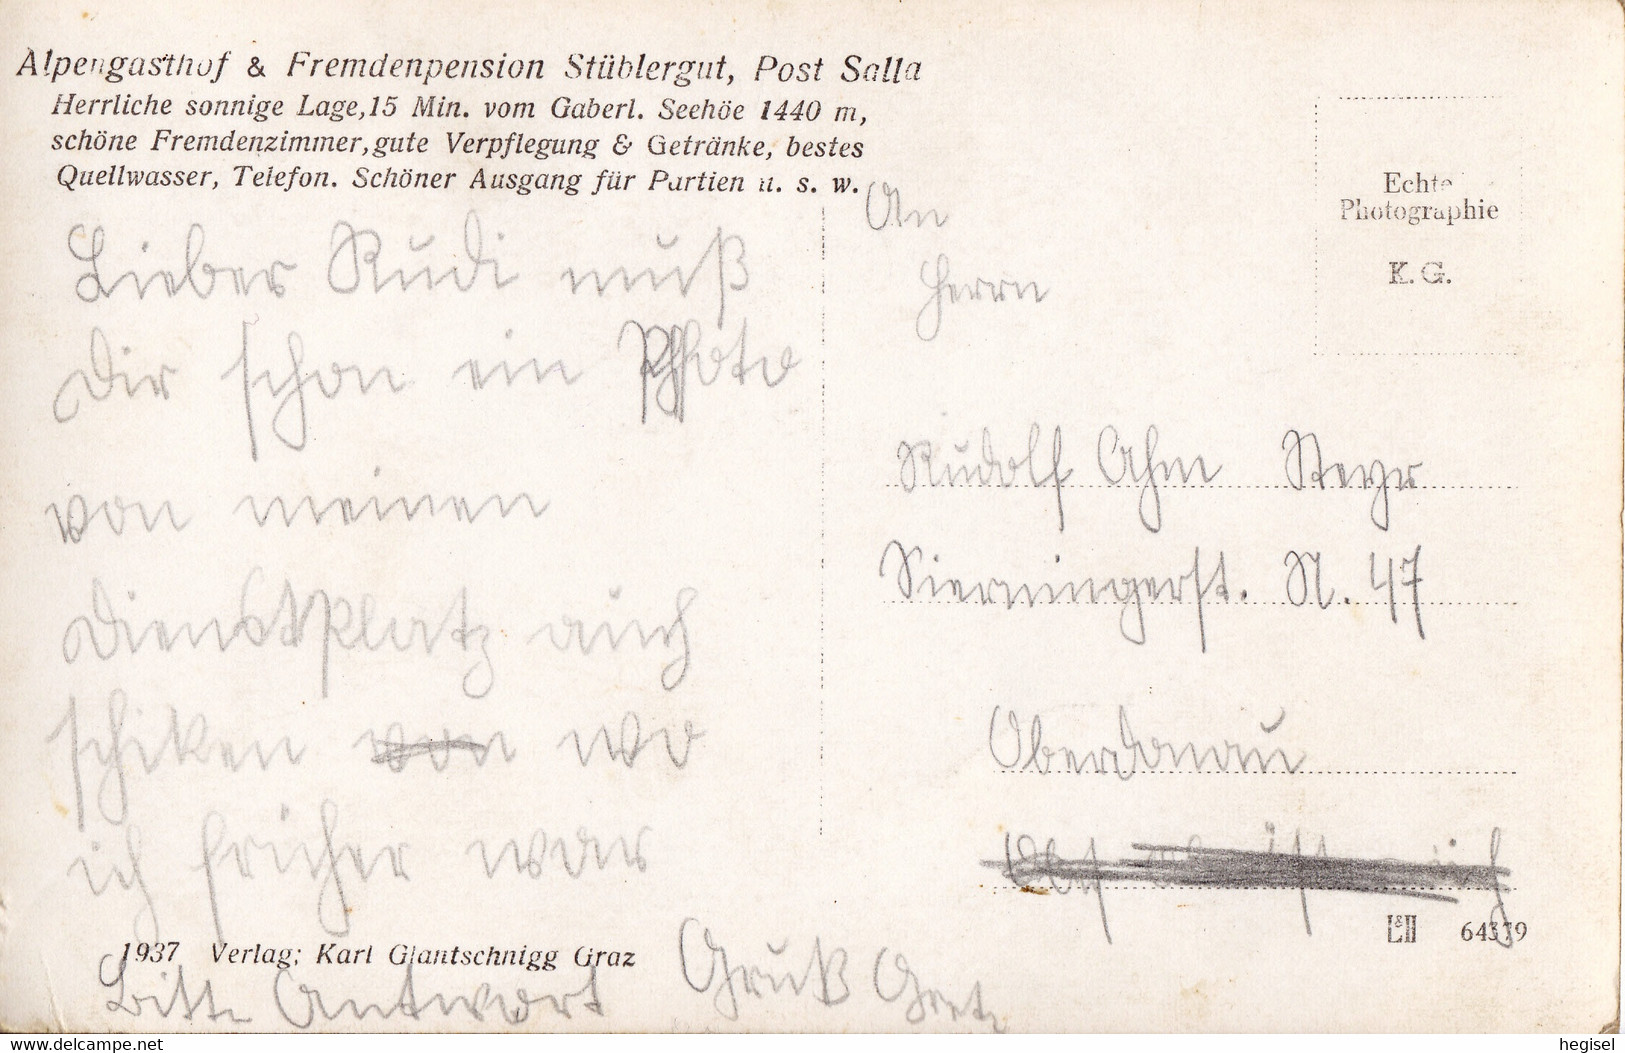 Alpengasthof & Fremdenpension Stüblergut, Post Salla
Herrliche sonnige Lage, 15 Min. vom Gaberl. Seehöe 1440 m,
schöne Fremdenzimmer, gute Verpflegung & Getränke, bestes
Quellwasser, Telefon. Schöner Ausgang für Partien u. s. w.
Lieber Rudi muß
Dir schon ein Photo
von meinen
Dienstplatz auch
schiken von wo
ich früher war
1937 Verlag: Karl Glantschnigg Graz
Bitte Antwort Gruß Gretz
An
Herrn
Echte
Photographie
K. G.
Rudolf Ahm Steyr
Sierningerst. N. 47
Oberdonau
L&H 64339
www.delcampe.net
hegisel